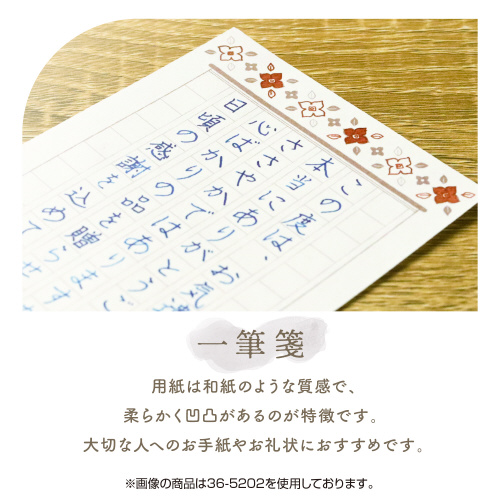 この度は、お気
本当にありがとうご
ささやかではあります
心ばかりの品を贈らせ
日頃の感謝を込めて
一筆箋
用紙は和紙のような質感で、
柔らかく凹凸があるのが特徴です。
大切な人へのお手紙やお礼状におすすめです。
※画像の商品は36-5202を使用しております。